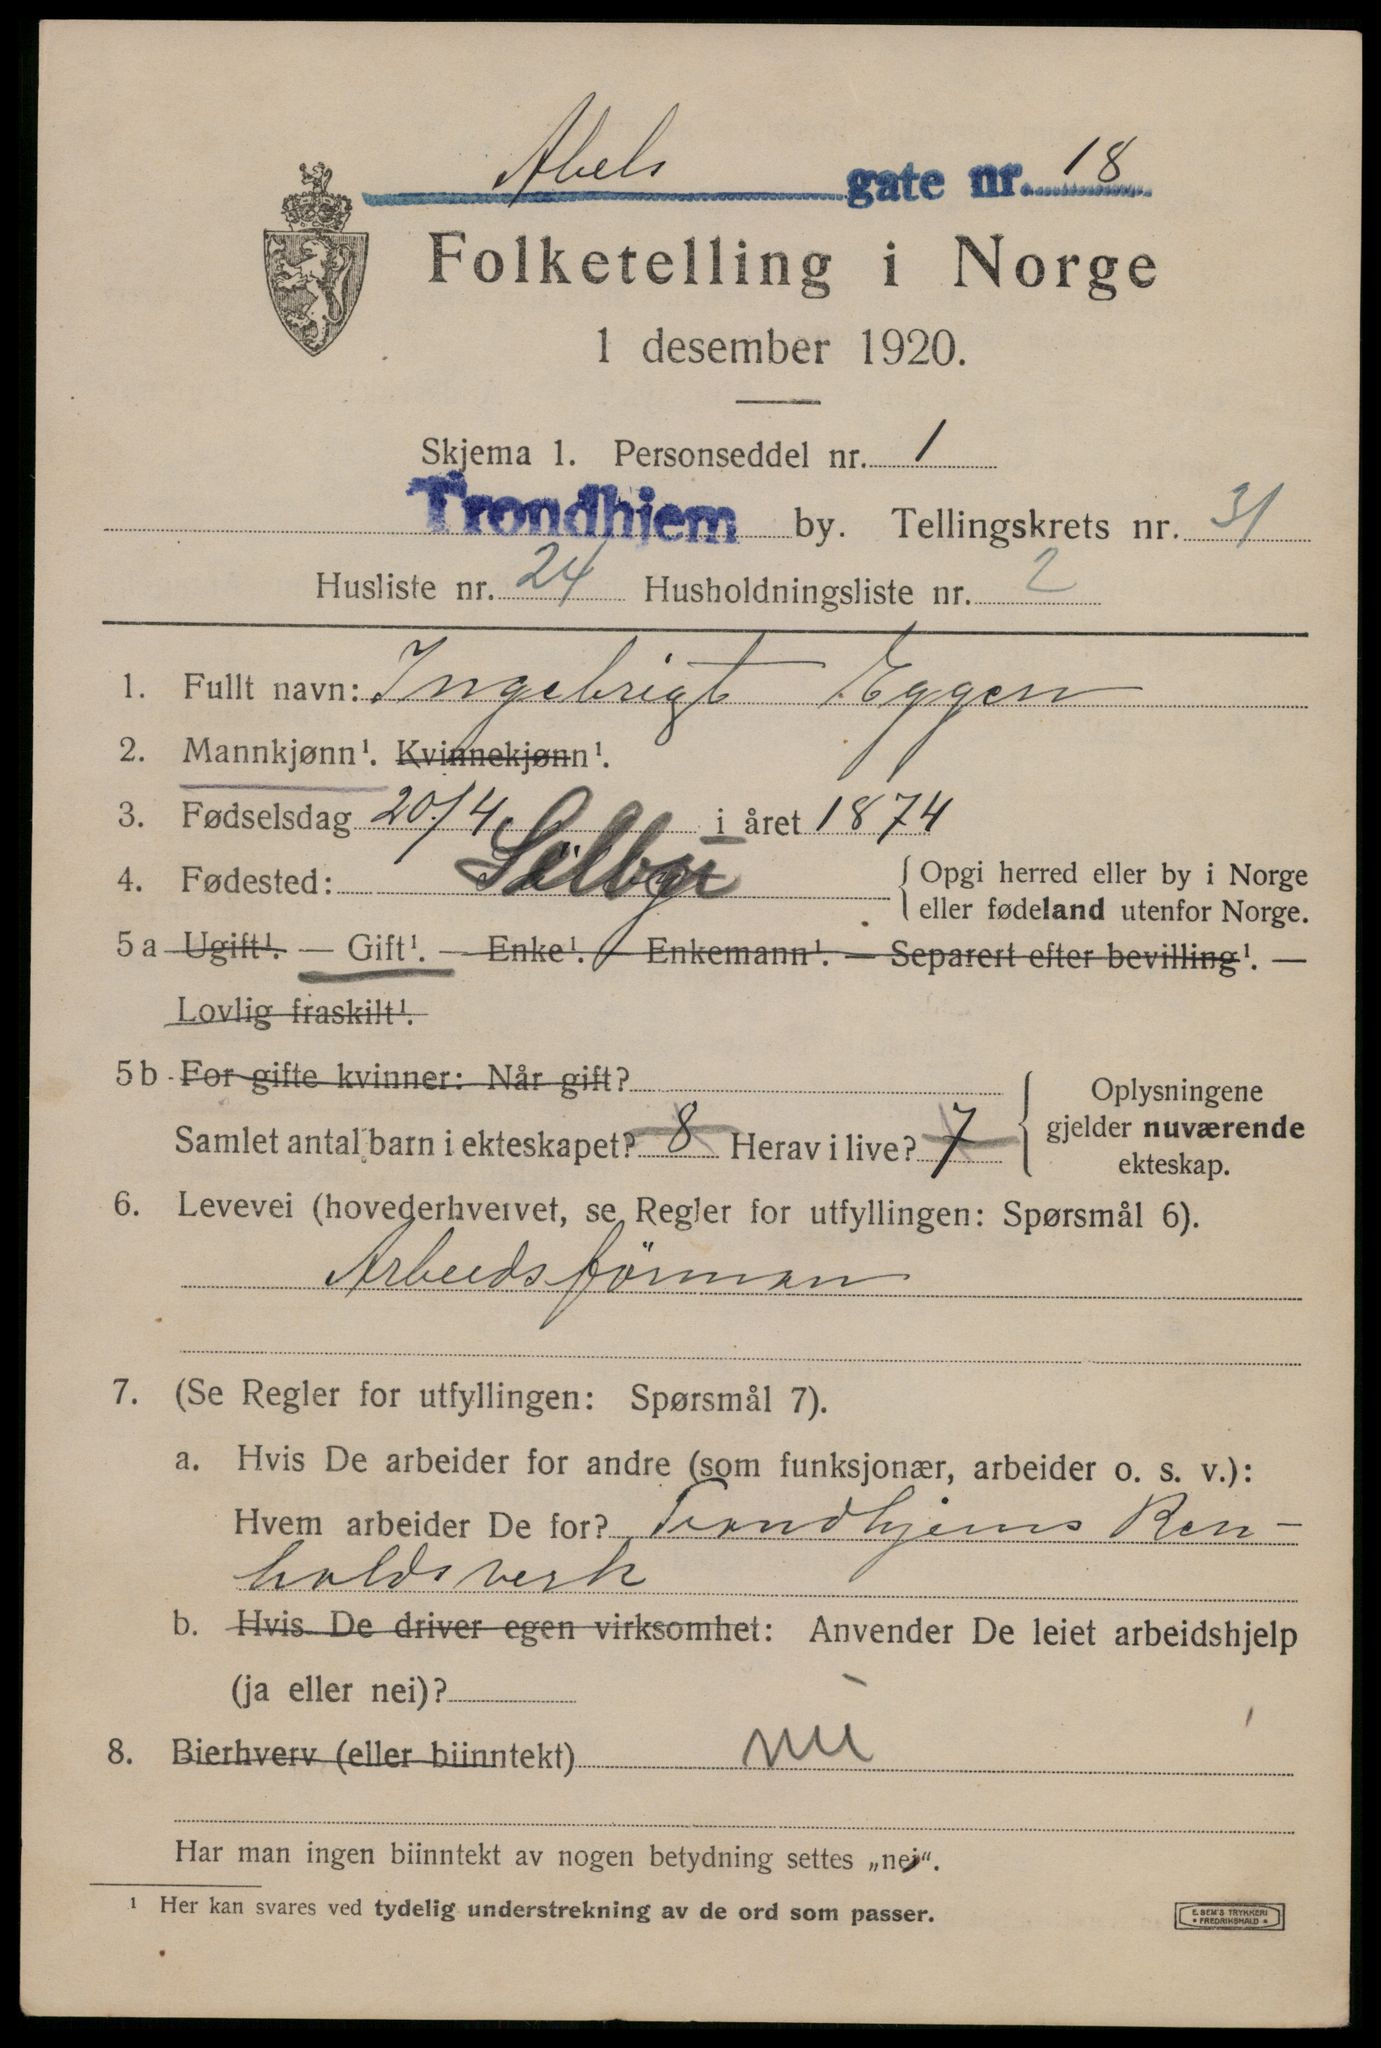 Abels gate nr. 18
Folketelling i Norge
1 desember 1920.
Skjema 1. Personseddel nr. 1
Trondhjem by. Tellingskrets nr. 31
Husliste nr. 24 Husholdningsliste nr. 2
1. Fullt navn: Ingebrigt Eggen
2. Mannkjønn¹. Kvinnekjønn¹.
3. Fødselsdag 20/4 i året 1874
4. Fødested: Selbu { Opgi herred eller by i Norge
eller fødeland utenfor Norge.
5 a Ugift¹. — Gift¹. — Enke¹. — Enkemann¹. — Separert efter bevilling¹. —
Lovlig fraskilt¹.
5 b For gifte kvinner: Når gift?
Samlet antal barn i ekteskapet? 8 Herav i live? 7 { Oplysningene
gjelder nuværende
ekteskap.
6. Levevei (hovederhvervet, se Regler for utfyllingen: Spørsmål 6).
Arbeidsförman
7. (Se Regler for utfyllingen: Spørsmål 7).
a. Hvis De arbeider for andre (som funksjonær, arbeider o. s. v.):
Hvem arbeider De for? Trondhjems Ren-
holdsverk
b. Hvis De driver egen virksomhet: Anvender De leiet arbeidshjelp
(ja eller nei)?
8. Bierhverv (eller biinntekt) nei
Har man ingen biinntekt av nogen betydning settes „nei“.
¹ Her kan svares ved tydelig understrekning av de ord som passer.
E. SEM'S TRYKKERI
* FREDRIKSHALD *